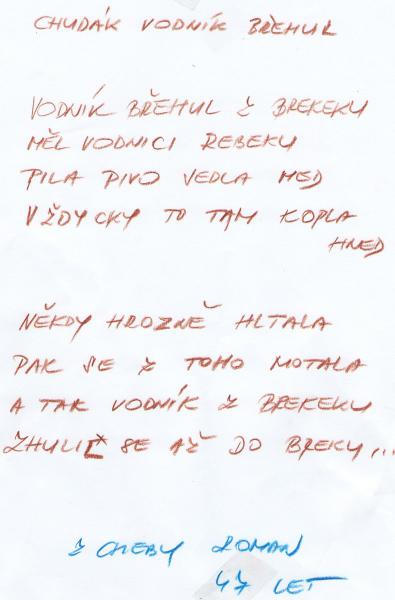 CHUDÁK VODNÍK BŘEHUL
VODNÍK BŘEHUL Z BREKEKU
MĚL VODNICI REBEKU
PILA PIVO VEDLA MED
VŽDYCKY TO TAM KOPLA
HNED
NĚKDY HROZNĚ HLTALA
PAK SE Z TOHO MOTALA
A TAK VODNÍK Z BREKEKU
ZHULIL SE AŽ DO BREKU...
Z CHEBY ROMAN
47 LET